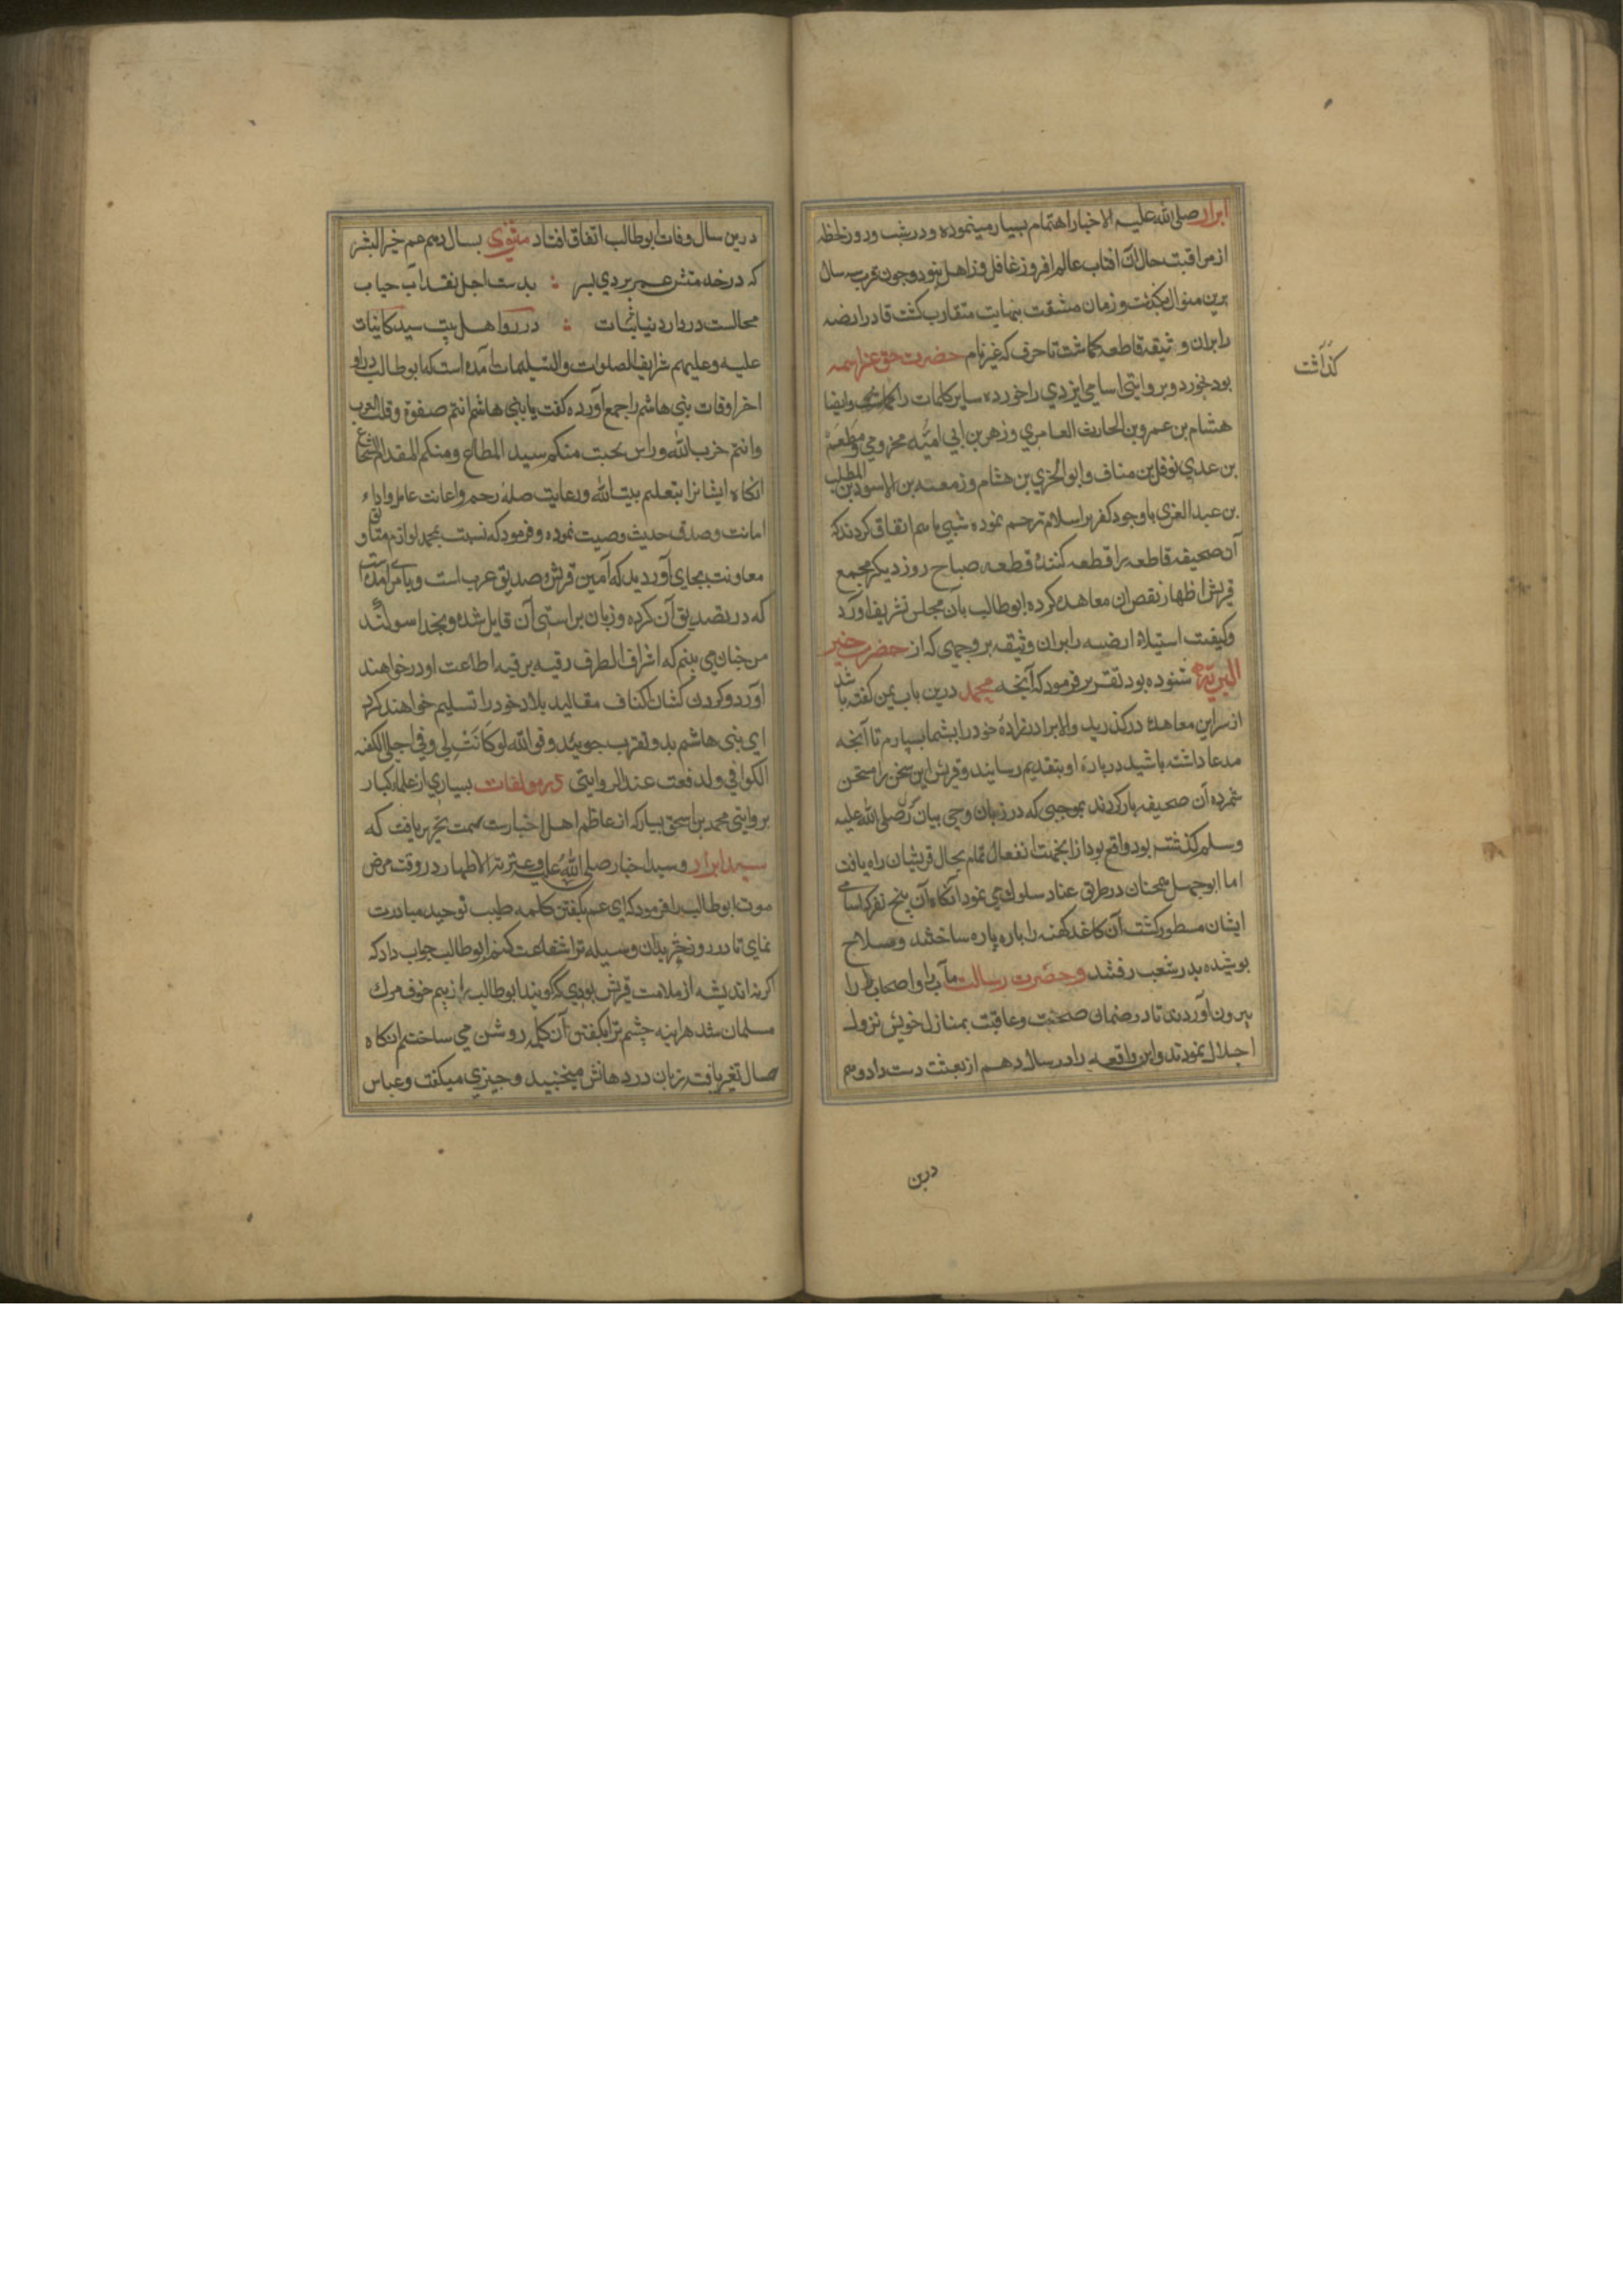 ابرار صلی الله علیه الاخیار اهتمام بسیار مینموده و در شب و روز لحظه
از مراقبت حال آن افتاب عالم افروز غافل و زاهل نبود و چون قرب سه سال
برین منوال بگذشت و زمان مشقت بنهایت متقارب کشت قادر ارضه
را بران و ثیقه قاطعه کماشت تا حرف که غیر نام حضرت حق عز اسمه
بود بخورد و بروایتی اسامی ایزدی را خورده سایر کلمات را وایضا
کذاشت
هشام بن عمرو بن الحارث العامری و زهر بن ابی امیّه مخزومی و مطعم
بن عدی نوفل بن مناف و ابو البختری بن هشام و زمعة بن الاسود بن المطلب
بن عبد العزی با وجود کفر بر اسلام ترحم نموده شبی باهم اتفاق کردند که
آن صحیفه قاطعه را قطعه کنند قطعه صباح روز دیکر مجمع
قریش اظهار نقص ان معاهده کرده ابوطالب بآن مجلس تشریف اورد
وکیفیت استیلاء ارضه را بران وثیقه بر وجهی که از حضرت خیر
البریّة شنوده بود تقریر فرمود که آنچه محمد درین باب بمن کفته باشد
از سر این معاهده درکذرید والا برادرزاده خود را بشما بسپارم تا آنچه
مدعا داشته باشید درباره او بتقدیم رسانید و قریش این سخن را مستحسن
شمرده آن صحیفه باز کردند بموجبی که در زبان وحی بیان صلی الله علیه
وسلم کذشته بود واقع بود از انجهت انفعال تمام بحال قریشان راه یافت
اما ابوجهل همچنان در طرق عناد سلوک می نمود انکاه آن پنج نفر که اسامی
ایشان مسطور کشت آن کاغذ کهنه را پاره پاره ساختند و سلاح
پوشیده بدر شعب رفتند و حضرت رسالت مآب را و اصحاب را
بیرون آوردند تا در ضمان صحت و عافیت بمنازل خویش نزول
اجلال نمودند و این واقعه را در سال دهم از بعثت دست داد و هم
درین
درین سال وفات ابوطالب اتفاق افتاد مثنوی بسال دهم عم خیر البشر
که در خدمتش عمر بردی بسر بدست اجل نقد آب حیات
محالست در دار دنیا ثبات در روا هل بیت سید کاینات
علیه و علیهم شرایف الصلوات والتسلیمات آمده است که ابوطالب در
اخر اوقات بنی هاشم را جمع آورده کفت یا بنی هاشم انتم صفوة و قلب العرب
وانتم حزب الله وراس منکم سید المطاع ومنکم المقدام الشجاع
انکاه ایشانرا بتعلیم بیت الله و رعایت صله رحم و اعانت عامل و اداء
امانت و صدق حدیث وصیت نموده و فرمود که نسبت بمحمد لوازم
معاونت بجای آورید که آمین قریش و صدیق عرب است
که در تصدیق آن کرده و زبان براستی آن قایل شده و بخدا سوکند
من چنان می بینم که اشراف الطرف رقبه برقبه اطاعت او درخواهند
آورد و کردن کشان اکناف مقالید بلاد خود را تسلیم خواهند کرد
ای بنی هاشم بدو تقرب جویید و فوالله لو کانت لی وفی اجلی
الکوافی ولدفعت عند الروایتی در مولفات بسیاری از علماء کبار
بروایتی محمد بن اسحق بیار که از عاظم اهل اخبارست سمت تحریر یافت که
سید ابرار و سید اخیار صلی الله علیه و عترته الاطهار در وقت مرض
موت ابوطالب را فرمود که ای عم بکفتن کلمه طیب توحید مبادرت
نمای تا در روز بدان وسیله ترا شفاعت کنم ابوطالب جواب داد که
اکر نه اندیشه از ملامت قریش بودی که کویند ابوطالب از بیم خوف مرک
مسلمان شد هراینه چشم ترا بکفتن آن کلمه روشن می ساختم انکاه
حال تغیر یافت زبان در دهانش میجنبید و چیزی میکفت و عباس